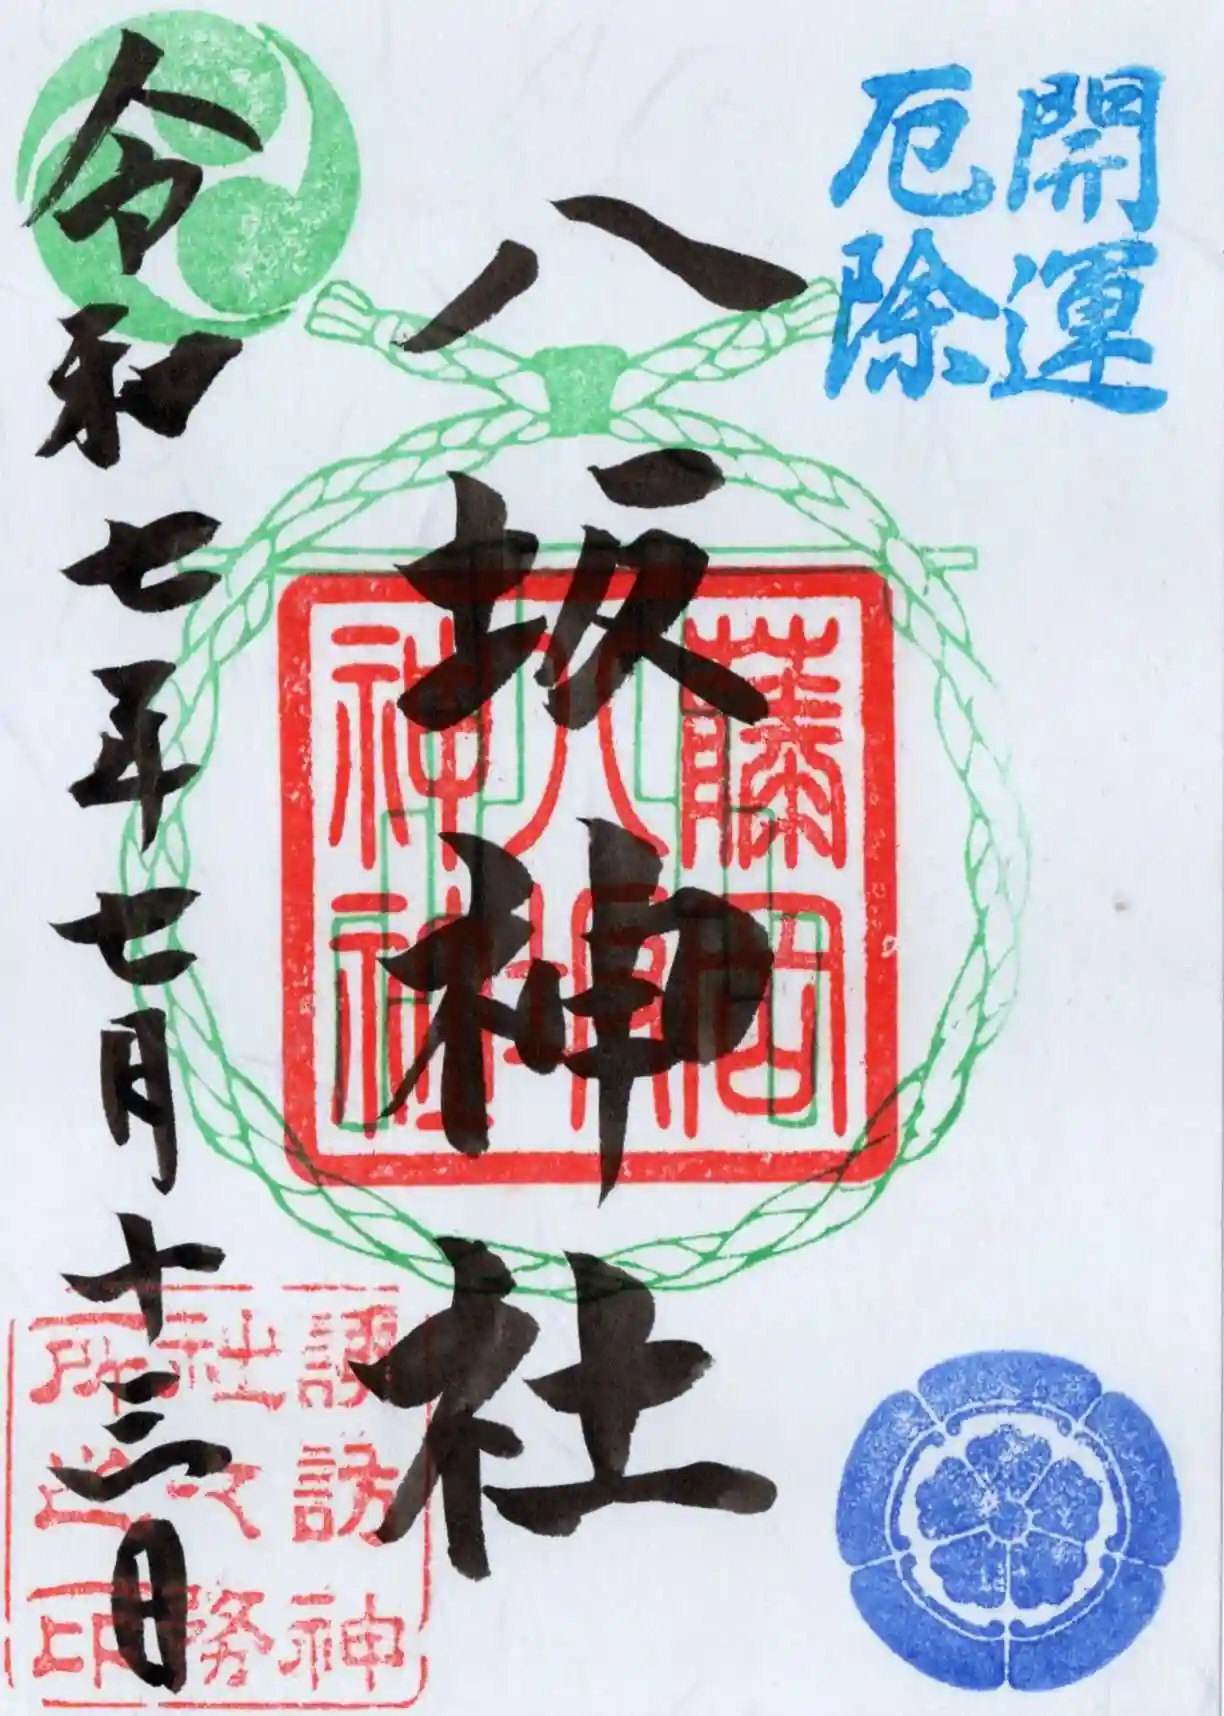 開運
厄除
八坂神社
藤岡
八坂
神社
令和七年七月十三日
諏訪神
社之務
所之印